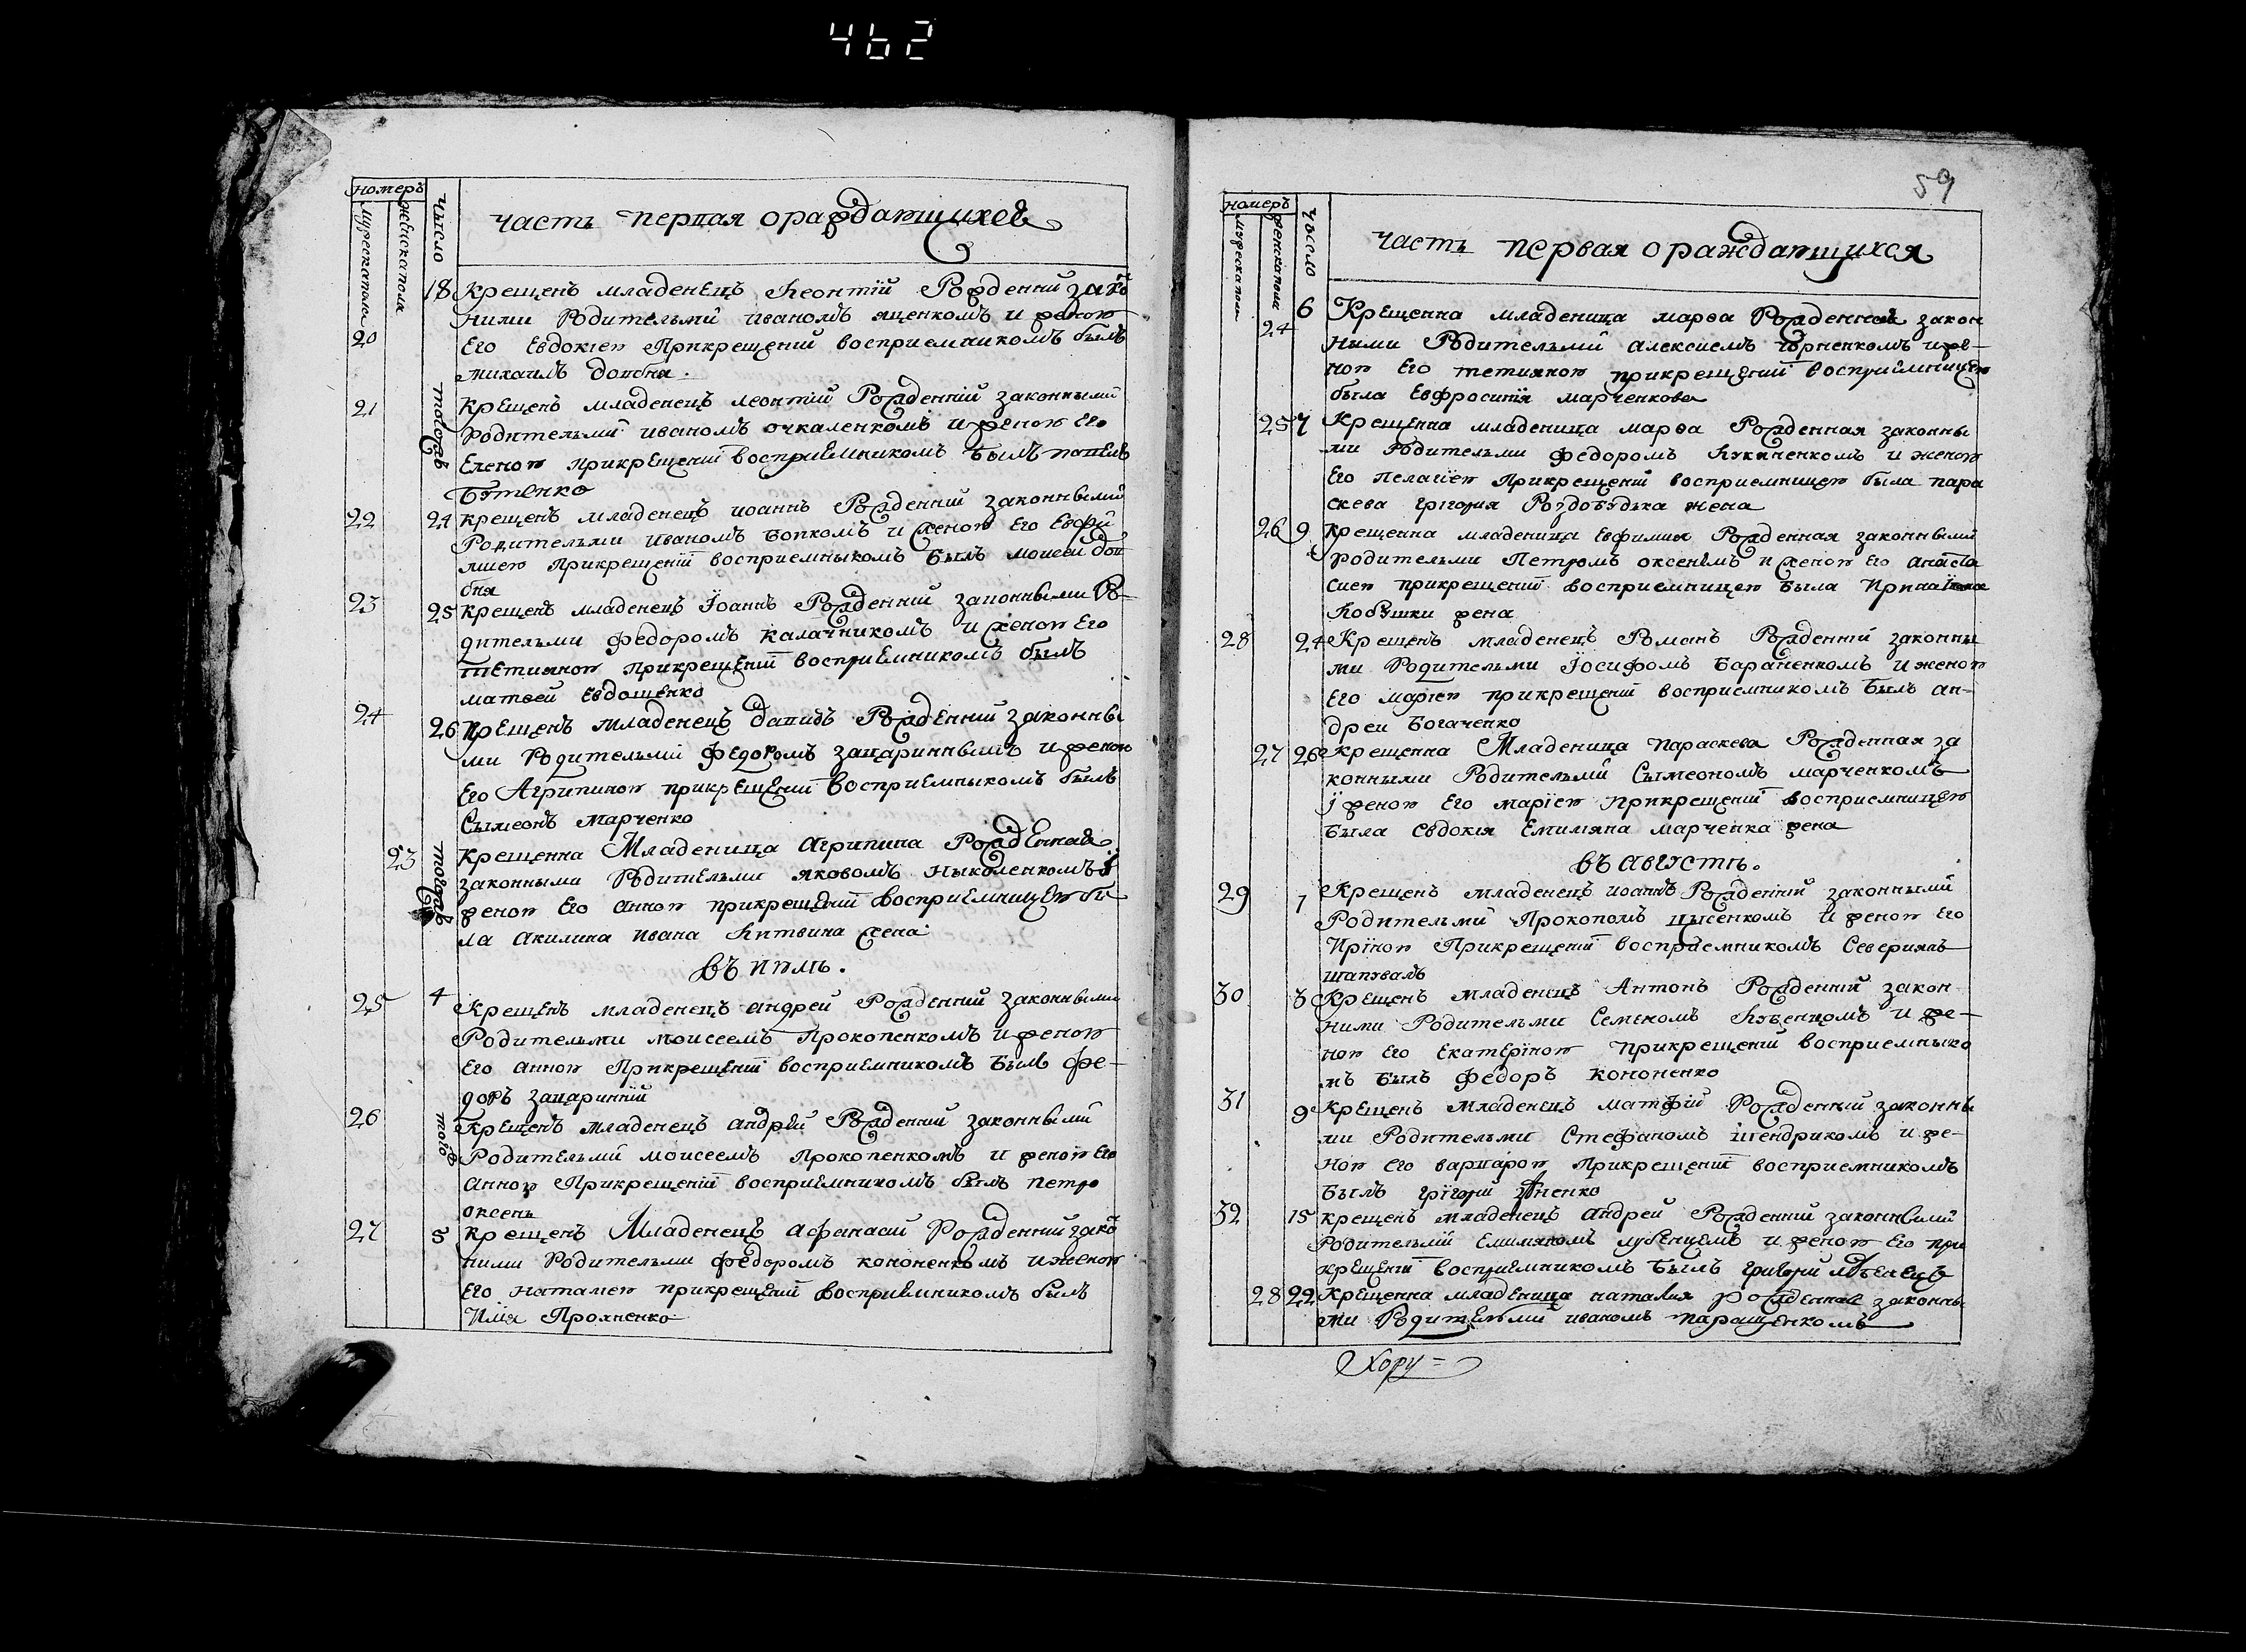 462
59
номеръ
мужеска пола
женска пола
число
часть первая о раждающихся
18 Крещенъ младенецъ Леонтїй Рожденнй зако
ними Родительми иваномъ яценкомъ и женою
20
Его Евдокїею Прикрещенїй восприемникомъ былъ
михаилъ довбня.
21
тогожъ
Крещенъ младенецъ леонтїй Рожденнїй законными
Родительми иваномъ очкаленкомъ и женою Его
Еленою прикрещенїї восприемникомъ былъ павелъ
Бутенко
22 21 крещенъ младенецъ иоаннъ Рожденнїй законными
Родительми иваномъ Бопкомъ и женою Его Евфи
миею прикрещенїї восприемныкомъ Былъ моисей дов
бня
23 25 крещенъ младенецъ Їоаннъ Рожденнїй законными Ро-
дительми федоромъ калачникомъ и женою Его
тетияною прикрещенїї восприемникомъ былъ
матвей Евдошенко
24
26 крещенъ младенецъ давидъ Рожденнїй законны
ми Родительми федоромъ зацариннымъ и женою
Его Агрипиною прикрещенїї восприемныкомъ былъ
Сымеонъ марченко
23 тогожъ
Крещенна Младеница Агрипина Рожденная
законными Родительми яковомъ ныколенкомъ и
женою Его анною прикрещенїї восприемницею бы
ла акилина ивана литвина жена
въ июль.
25 4 Крещенъ младенецъ андрей Рожденнїй законными
Родительми моисеемъ Прокопенкомъ и женою
Его анною Прикрещенїї восприемникомъ Былъ фе-
доръ зацариннїй
26 тогожъ
Крещенъ младенецъ андрей Рожденнїй законными
Родительми моисеемъ Прокопенкомъ и женою Его
анною Прикрещенїї восприемникомъ былъ петро
оксень
27 5 Крещенъ Младенецъ афанасий Рожденнїй зако
ними Родительми федоромъ кононенкомъ и женою
Его наталею прикрещенїї восприемникомъ былъ
Илїя Прохненко
номеръ
мужеска пола
женска пола
число
часть первая о раждающихся
6 Крещенна младеница марѳа Рожденная закон
24
ными Родительми алексиемъ чорненкомъ и же-
ною Его тетияною прикрещенїї восприемницею
была Евфросинїя марченкова
25 7 Крещенна младеница марѳа Рожденная законны
ми Родительми федоромъ и женою
Его пелагїею прикрещенїй восприемницею была пара
скева григория Роздобудька жена
26 9 Крещенна младеница Евфимия Рожденная законными
Родительми Петромъ оксенемъ и женою Его анаста
сиею прикрещенїї восприемницею Была
Кобушки жена
28 24 Крещенъ младенецъ Романъ Рожденнїй законны
ми Родительми Їосифомъ Бараненкомъ и женою
Его марїею прикрещенїї восприемникомъ былъ ан-
дреи Богаченко
27 26 Крещенна Младеница параскева Рожденная за
конными Родительми Сымеономъ марченкомъ
ї женою Его марїею прикрещенїї восприемницею
была Евдокїя Емилияна марченка жена
въ августѣ.
29 1 Крещенъ младенецъ иоаннъ Рожденнїй законными
Родительми Прокопомъ цысенкомъ и женою Его
Ирїною Прикрещенїї восприемникомъ Северианъ
шаповалъ
30 3 Крещенъ младенецъ Антонъ Рожденнїй закон
ними Родительми Семеномъ Лубенцомъ и же-
ною Его Екатерїною прикрещенїї восприемныко
мъ былъ федоръ кононенко
31 9 Крещенъ младенецъ матфїй Рожденнїй законны
ми Родительми Стефаномъ шендрикомъ и же-
ною Его варварою Прикрещенїї восприемникомъ
Былъ григорїй
32 15 крещенъ младенецъ андрей Рожденнїй законными
Родительми Емилияномъ лубенцемъ и женою Его при
крещенїї восприемникомъ Былъ григорїй лубенецъ
28 22 Крещенна младеница наталия Рожденная законны
ми Родительми иваномъ паращенкомъ
Хору=